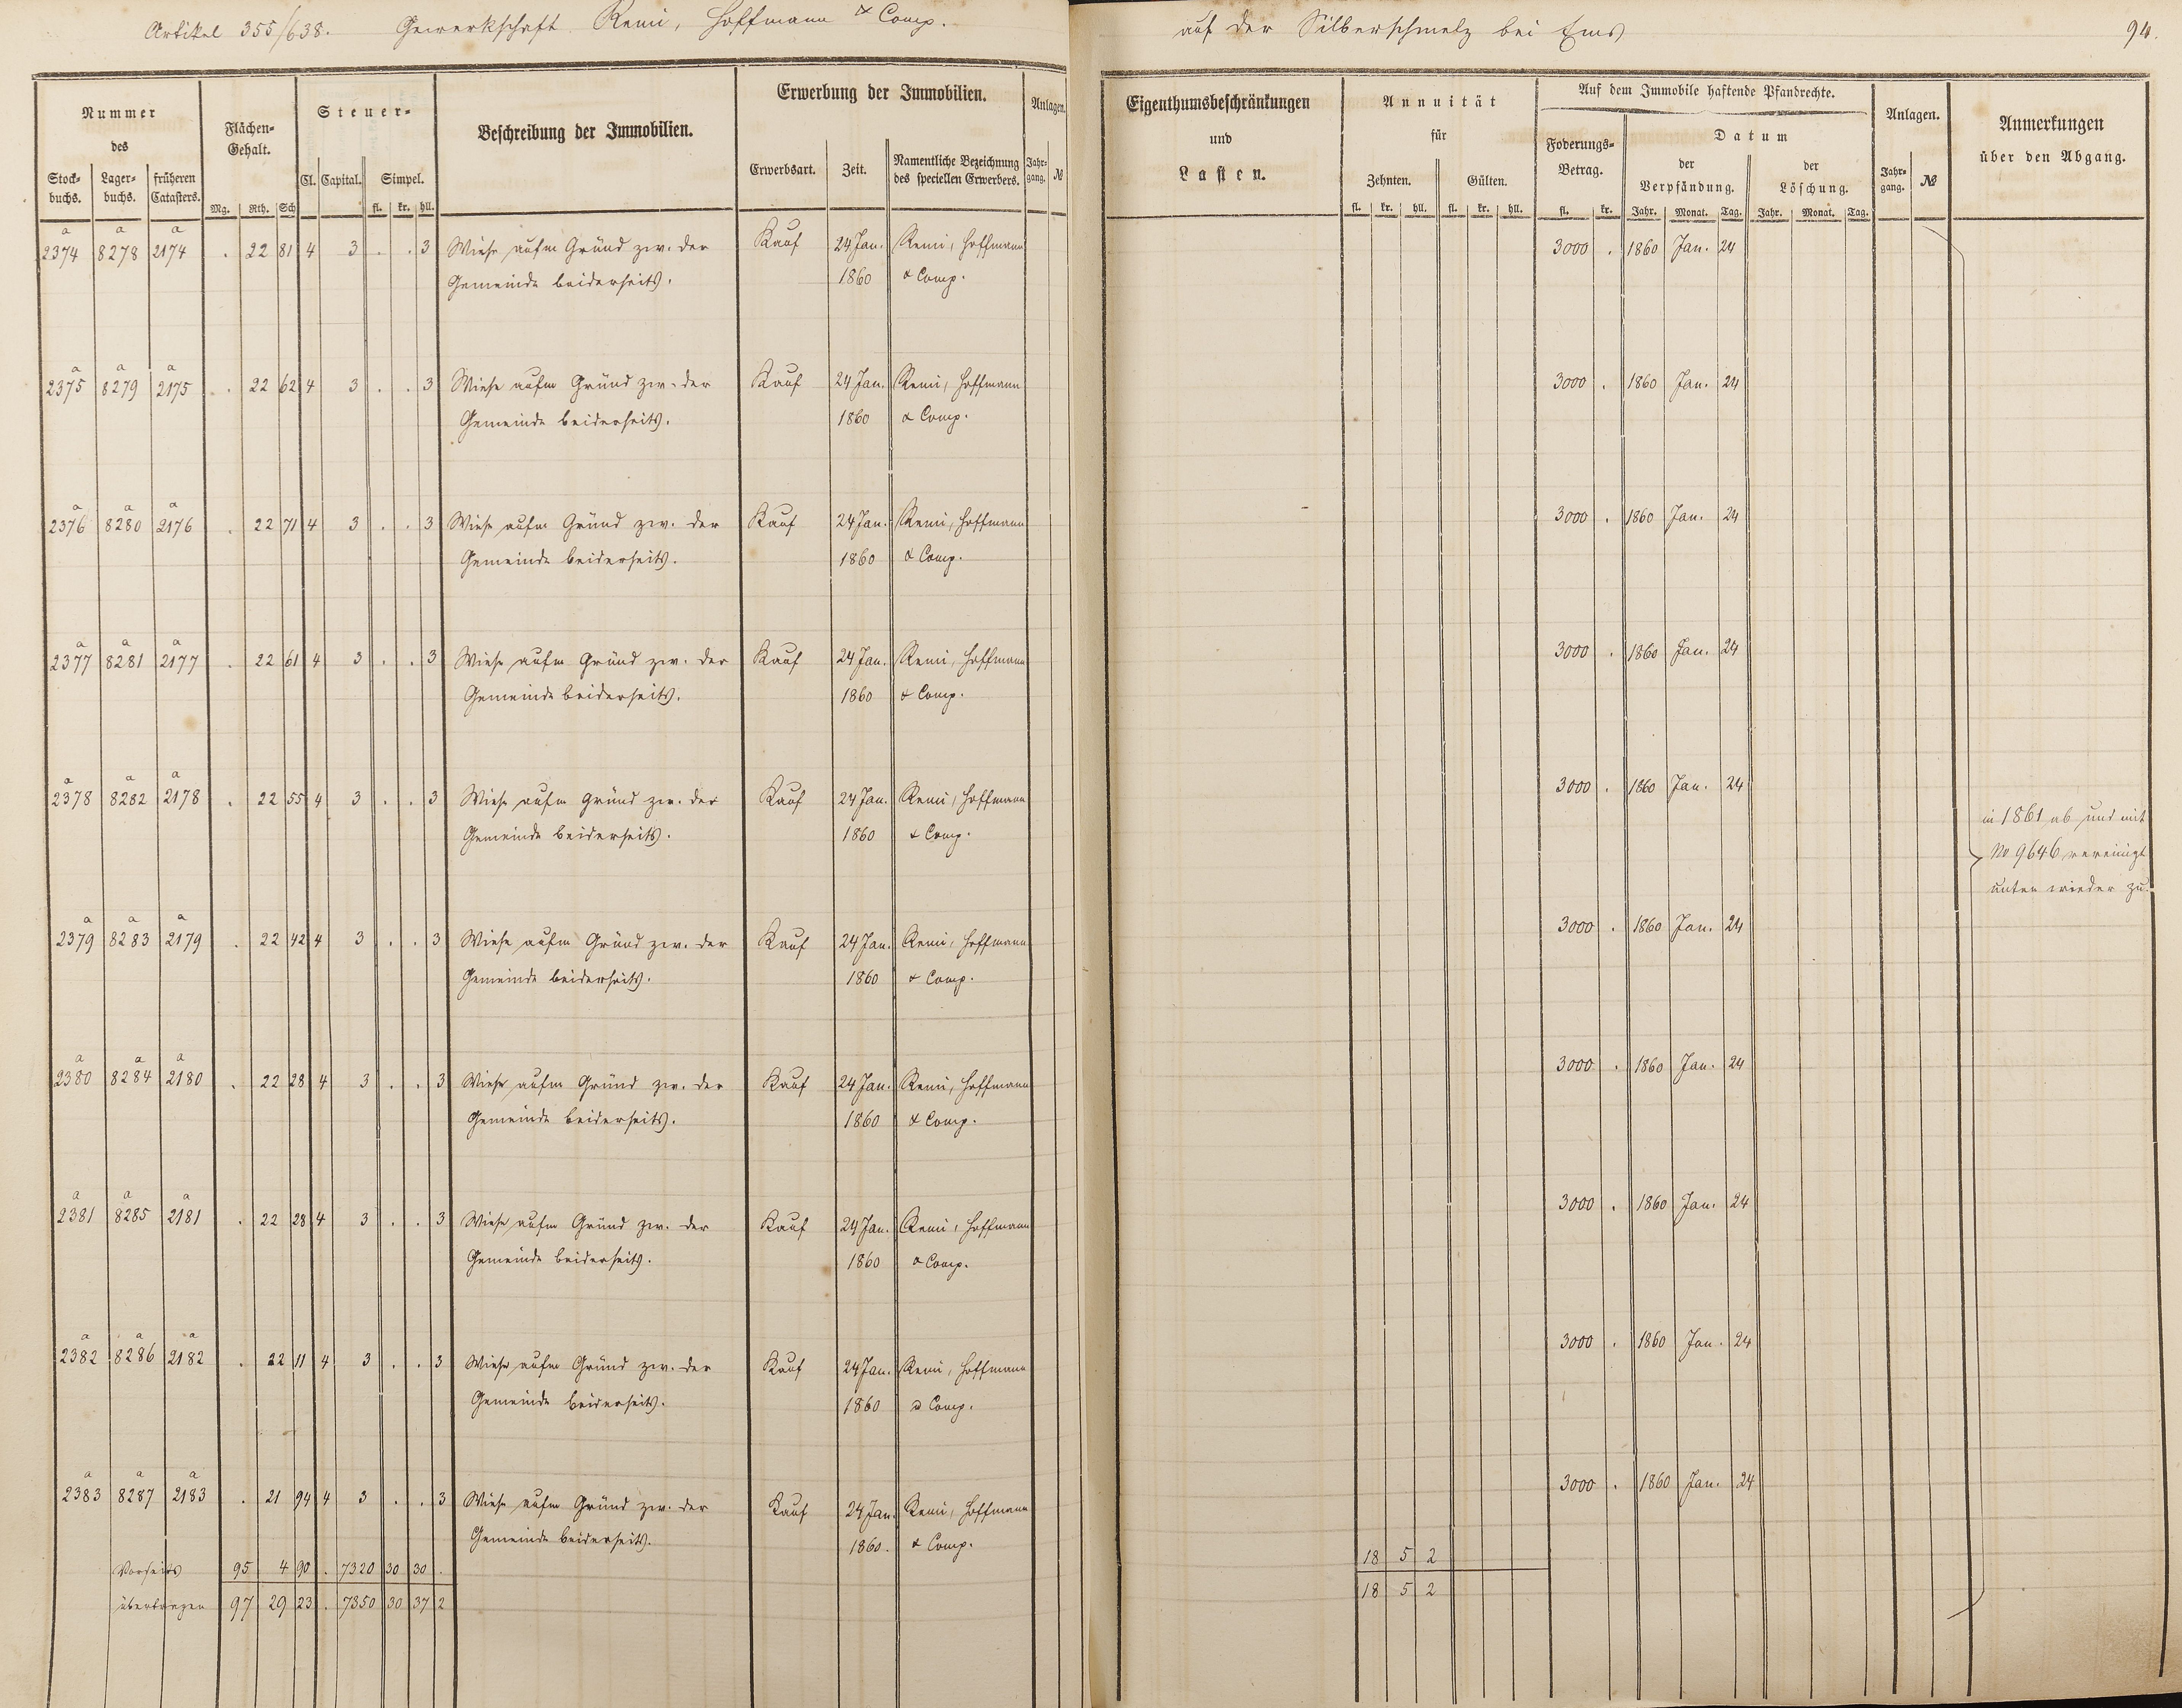 Artikel 355/638. Gewerkschaft Remi, Hoffmann & Comp.
auf der Silberschmelz bei Ems 94.
Nummer
des
Stock-
buchs.
Lager-
buchs.
früheren
Catasters.
Flächen-
Gehalt.
Mg. Rth. Sch
Steuer-
Cl. Capital. Simpel.
fl. kr. hll.
Beschreibung der Immobilien.
Erwerbung der Immobilien.
Erwerbsart. Zeit.
Namentliche Bezeichnung
des speciellen Erwerbers.
Anlagen.
Jahr-
gang. №
Eigenthumsbeschränkungen
und
Lasten.
Annuität
für
Zehnten. Gülten.
fl. kr. hll. fl. kr. hll.
Auf dem Immobile haftende Pfandrechte.
Foderungs-
Betrag.
fl. kr.
Datum
der
Verpfändung.
Jahr. Monat. Tag.
der
Löschung.
Jahr. Monat. Tag.
Anlagen.
Jahr-
gang. №
Anmerkungen
über den Abgang.
a a a
2374 8278 2174 . 22 81 4 3 . . 3 Wiese aufm Gründ zw. der Kauf 24 Jan. Remi, Hoffmann 3000 . 1860 Jan. 24
Gemeinde beiderseits. 1860 & Comp.
a a a
2375 8279 2175 . 22 62 4 3 . . 3 Wiese aufm Gründ zw. der Kauf 24 Jan. Remi, Hoffmann 3000 . 1860 Jan. 24
Gemeinde beiderseits. 1860 & Comp.
a a a
2376 8280 2176 . 22 71 4 3 . . 3 Wiese aufm Gründ zw. der Kauf 24 Jan. Remi, Hoffmann 3000 . 1860 Jan. 24
Gemeinde beiderseits. 1860 & Comp.
a a a
2377 8281 2177 . 22 61 4 3 . . 3 Wiese aufm Gründ zw. der Kauf 24 Jan. Remi, Hoffmann 3000 . 1860 Jan. 24
Gemeinde beiderseits. 1860 & Comp.
a a a
2378 8282 2178 . 22 55 4 3 . . 3 Wiese aufm Gründ zw. der Kauf 24 Jan. Remi, Hoffmann 3000 . 1860 Jan. 24
Gemeinde beiderseits. 1860 & Comp.
in 1861 ab und mit
No 9646 vereinigt
unten wieder zu.
a a a
2379 8283 2179 . 22 42 4 3 . . 3 Wiese aufm Gründ zw. der Kauf 24 Jan. Remi, Hoffmann 3000 . 1860 Jan. 24
Gemeinde beiderseits. 1860 & Comp.
a a a
2380 8284 2180 . 22 28 4 3 . . 3 Wiese aufm Gründ zw. der Kauf 24 Jan. Remi, Hoffmann 3000 . 1860 Jan. 24
Gemeinde beiderseits. 1860 & Comp.
a a a
2381 8285 2181 . 22 28 4 3 . . 3 Wiese aufm Gründ zw. der Kauf 24 Jan. Remi, Hoffmann 3000 . 1860 Jan. 24
Gemeinde beiderseits. 1860 & Comp.
a a a
2382 8286 2182 . 22 11 4 3 . . 3 Wiese aufm Gründ zw. der Kauf 24 Jan. Remi, Hoffmann 3000 . 1860 Jan. 24
Gemeinde beiderseits. 1860 & Comp.
a a a
2383 8287 2183 . 21 94 4 3 . . 3 Wiese aufm Gründ zw. der Kauf 24 Jan. Remi, Hoffmann 3000 . 1860 Jan. 24
Gemeinde beiderseits. 1860. & Comp.
Vorseits 95 4 90 . 7320 30 30 . 18 5 2
übertragen 97 29 23 . 7350 30 37 2 18 5 2